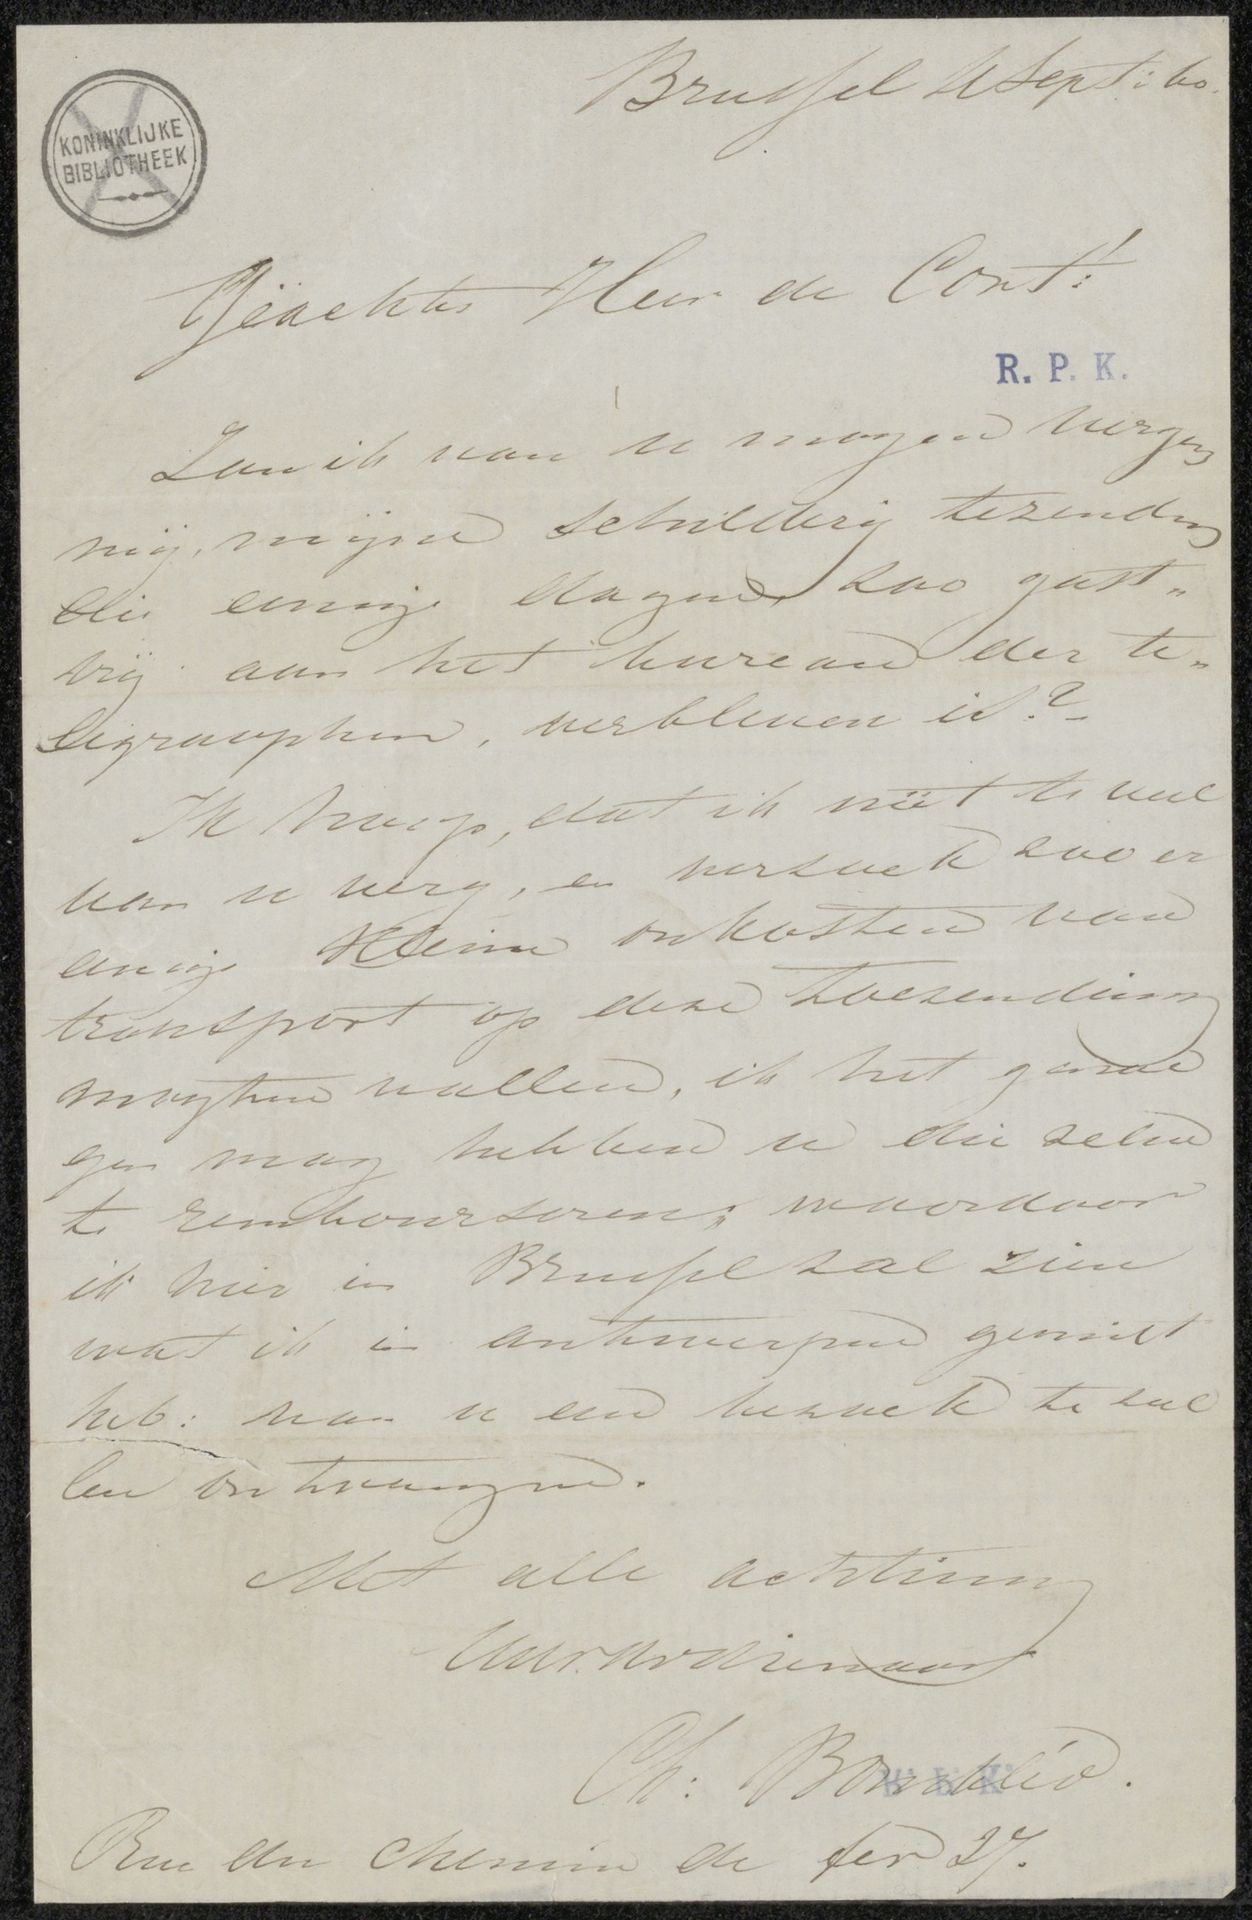 Brussel 4 Sept: 60.
KONINKLIJKE
BIBLIOTHEEK
Geachte Heer de Cort!
R. P. K.
Zou ik van U mogen vergen
mij, mijne schilderij te zenden
die eenige dagen zoo gast„
vrij aan het bureau der te„
legraaphen, verbleven is?
Ik hoop, dat ik niet te veel
van u verg, en verzoek zoo er
eenige kleine onkosten van
transport op deze toezending
mogten vallen, ik het genoe
gen mag hebben u die zelve
te rembourseren; waardoor
ik hier in Brussel zal zien
wat ik in Antwerpen gemist
heb: van u een bezoek te zul
len ontvangen.
Met alle achting
Uw.
Ch: Bombled.
Rue du chemin de fer 27.